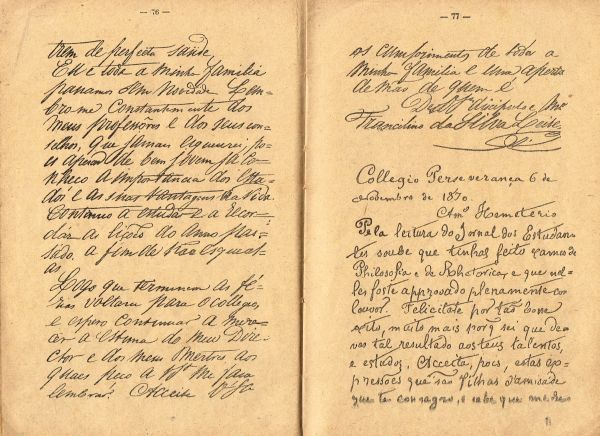 — 76 —
trem de perfecta saude.
Eu e toda a minha familia
passamos sem novidade. Lem-
bro-me constantemente dos
meus professores e dos seus con-
selhos, que jamais esquecerei; po-
is apezar de bem jovem já co-
nheço a importancia dos estu-
dos e as suas vantagens na vida.
Continuo a estudar e a recor-
dar as lições do anno pas-
sado, a fim de não esquecel-
as.
Logo que terminem as fé-
rias voltarei para o collegio,
e espero continuar a mere-
cer a estima do meu Dire-
ctor e dos meus Mestres aos
quaes peço a V. Sª me faça
lembrar. Acceite V. Sª
— 77 —
os cumprimentos de toda a
minha familia e um aperto
de mão de quem é
De V. Sª discipulo e
Francelino da Silva Leite
Collegio Perseverança 6 de
de 1870.
Amº Hemeterio
Pela leitura do Jornal dos Estudan-
tes soube que tinhas feito exames de
Philosophia e de Rhetorica, e que nel-
les foste approvado plenamente com
louvor. Felicitate por tão bom
exito, muito mais porq sei que de-
vas tal resultado aos teus talentos,
e estudos. Acceita, pois, estas ex-
pressões que são filhas d'amisade
que te consagro, e sabe que me de-